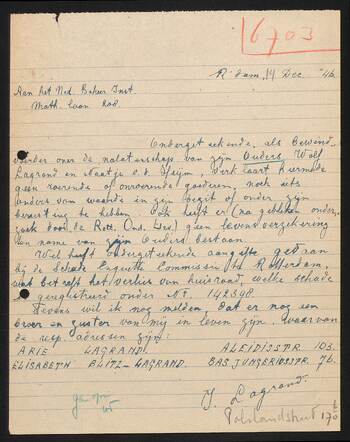 6703
R'dam, 14 Dec. '46.
Aan het Ned. Beheer Inst.
Math. laan
Ondergeteekende, als Bewind-
voerder over de nalatenschap van zijn Ouders Wolf
Lagrand en Naatje v.d. verklaart hiermede
geen roerende of onroerende goederen, noch iets
anders van waarde in zijn bezit of onder zijn
berusting te hebben. Ook heeft er (na gebleken onder-
zoek door de Rott. Ond. Ver.) geen levensverzekering
ten name van zijn Ouders bestaan.
Wel heeft ondergeteekende aangifte gedaan
bij de Schade Enquette Commissie te Rotterdam,
wat betreft het verlies van huisraad, welke schade
is geregistreerd onder Nr. 142398
Tevens wil ik nog melden, dat er nog een
broer en zuster van mij in leven zijn, waarvan
de resp. adressen zijn:
ARIE LAGRAND. ALEIDISSTR. 103.
ELISABETH BLITZ-LAGRAND. BAS JUNGERIUSSTR. 76.
J. Lagrand.
Polslandstraat 170